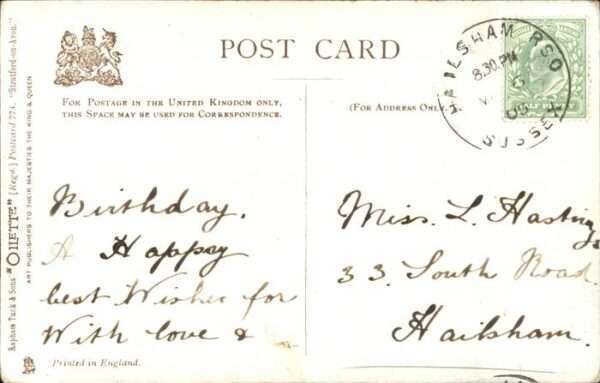 POST CARD
FOR POSTAGE IN THE UNITED KINGDOM ONLY,
THIS SPACE MAY BE USED FOR CORRESPONDENCE.
(FOR ADDRESS ONLY.
HAILSHAM RSO
8.30 PM
09
SUSSEX
HALF PENNY
Raphael Tuck & Sons' "OILETTE" [Regd.] Postcard 774. "Stratford-on-Avon."
ART PUBLISHERS TO THEIR MAJESTIES THE KING & QUEEN
Birthday.
A Happy
best Wishes for
With love &
Miss. L. Hastings
33. South Road.
Hailsham.
Printed in England.